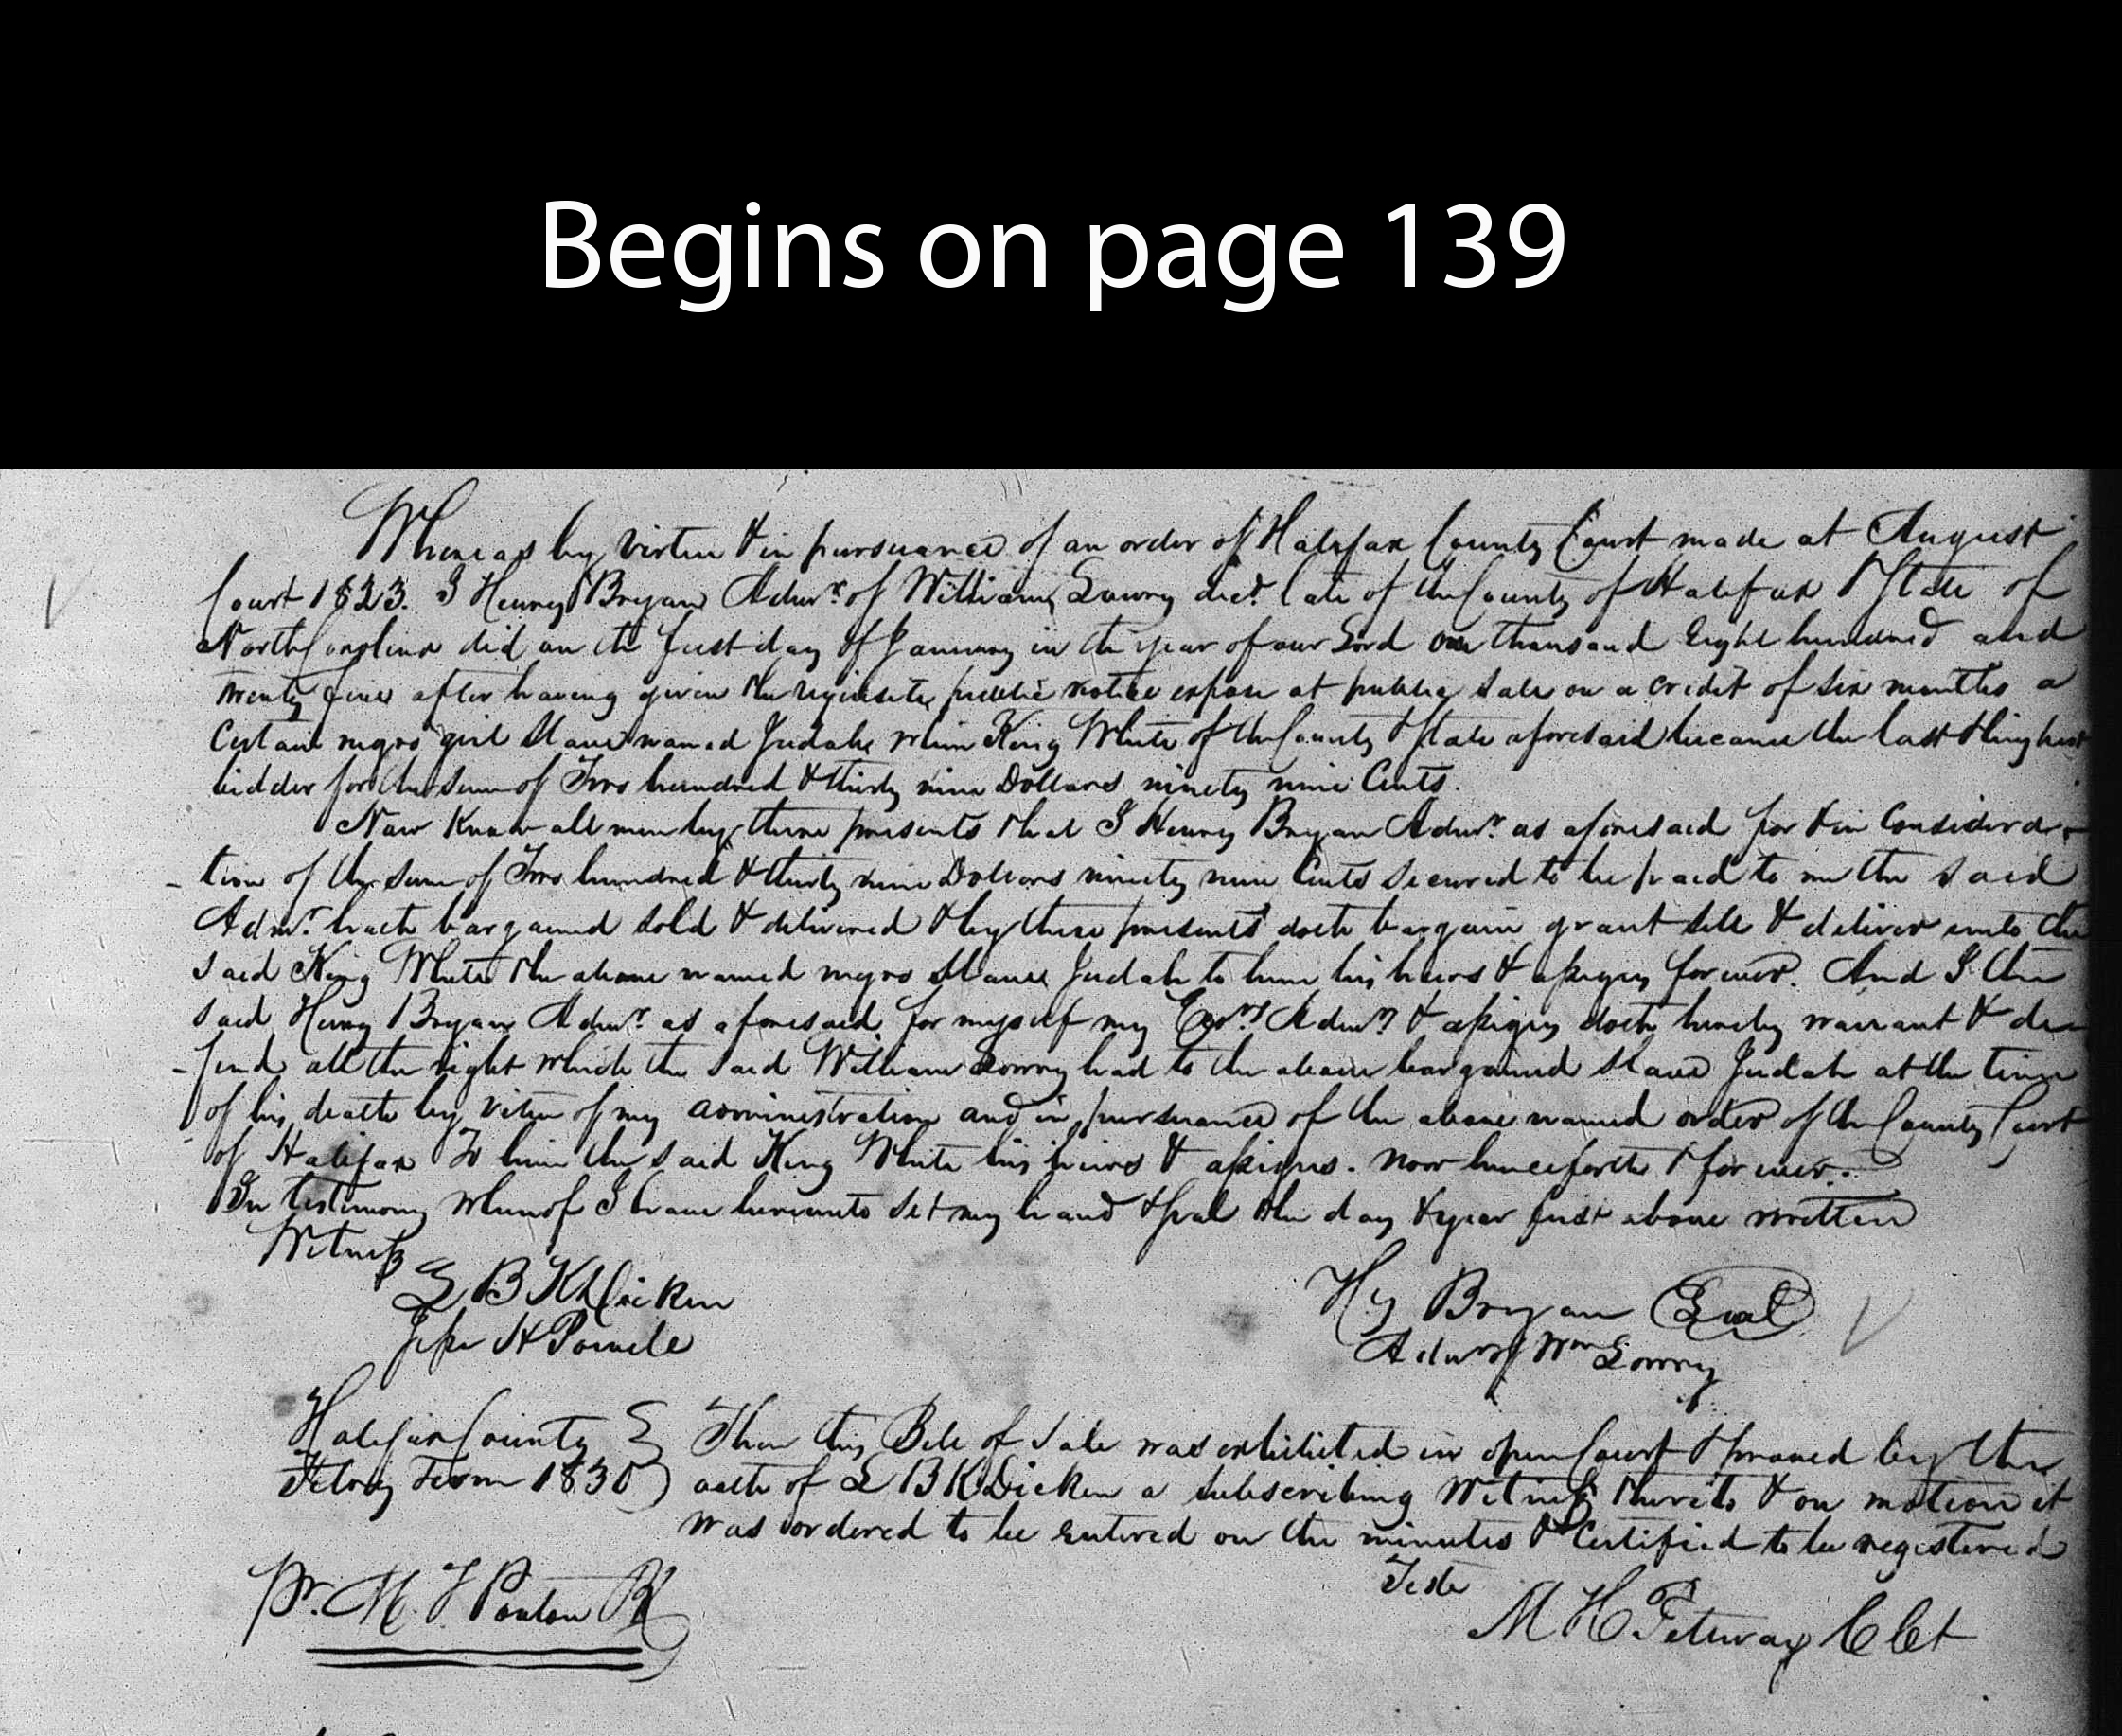 Begins on page 139
Whereas by virtue & in pursuance of an order of Halifax County Court made at August
Court 1823. I Henry Bryan Admr. of William Lowry decd. late of the County of Halifax & State of
North Carolina did on the first day of January in the year of our Lord one thousand Eight hundred and
twenty five after having given the requisite public notice expose at public sale on a credit of six months a
Certain negro girl slave named Judah, when King White of the County & State aforesaid became the last & highest
bidder for the sum of Two hundred & thirty nine Dollars ninety nine Cents.
Now Know all men by these presents that I Henry Bryan Admr. as aforesaid for & in Considera-
-tion of the sum of Two hundred & thirty nine Dollars ninety nine Cents secured to be paid to me the said
Admr. hath bargained sold & delivered & by these presents doth bargain grant sell & deliver unto the
said King White the above named negro slave Judah to him his heirs & assigns forever. And I the
said Henry Bryan Admr. as aforesaid for myself my Exrs. Admrs & assigns doth hereby warrant & de-
-fend all the right which the said William Lowry had to the above bargained slave Judah at the time
of his death by vitue of my administration and in pursuance of the above named order of the County Court
of Halifax To him the said King White his heirs & assigns. now henceforth & forever.
In testimony whereof I have hereunto set my hand & seal the day & year first above written
Witness
L B K Dicken
Jesse H Powell
Hy Bryan Seal
Admr of Wm Lowry
Halifax County
Feby Term 1830
Then this Bill of Sale was exhibited in open Court & proved by the
oath of L B K Dicken a subscribing Witness thereto & on motion it
was ordered to be entered on the minutes & Certified to be registered
Teste
M H Pettway C Ct
Pr. M. T Ponton PR